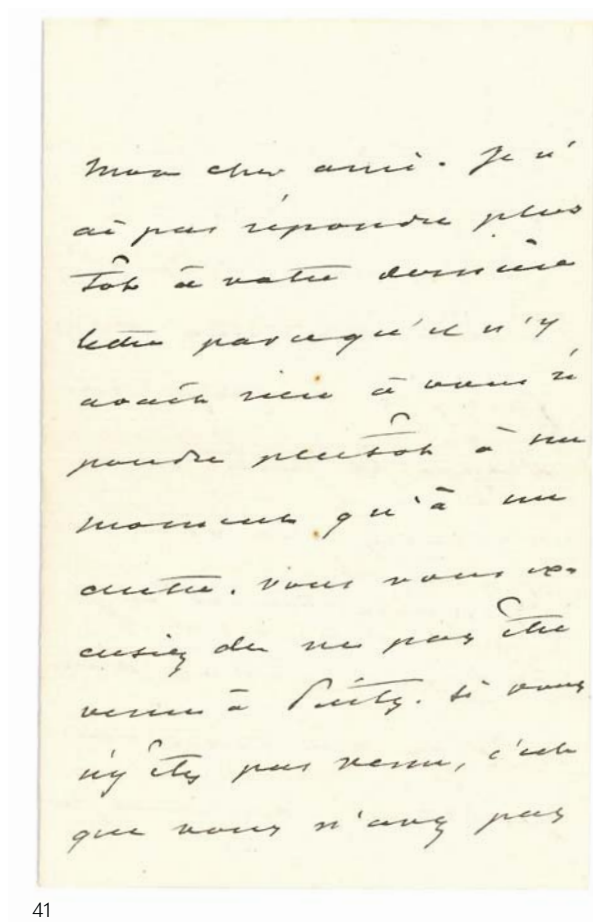 Mon cher ami. Je n'
ai pas répondu plus
tôt à votre dernière
lettre parcequ'il n'y
avait rien à vous ré
pondre plutôt à un
moment qu'à un
autre. Vous vous ex-
cusiez de ne pas être
venu à Puits. Si vous
n'y êtes pas venu, c'est
que vous n'avez pas
41